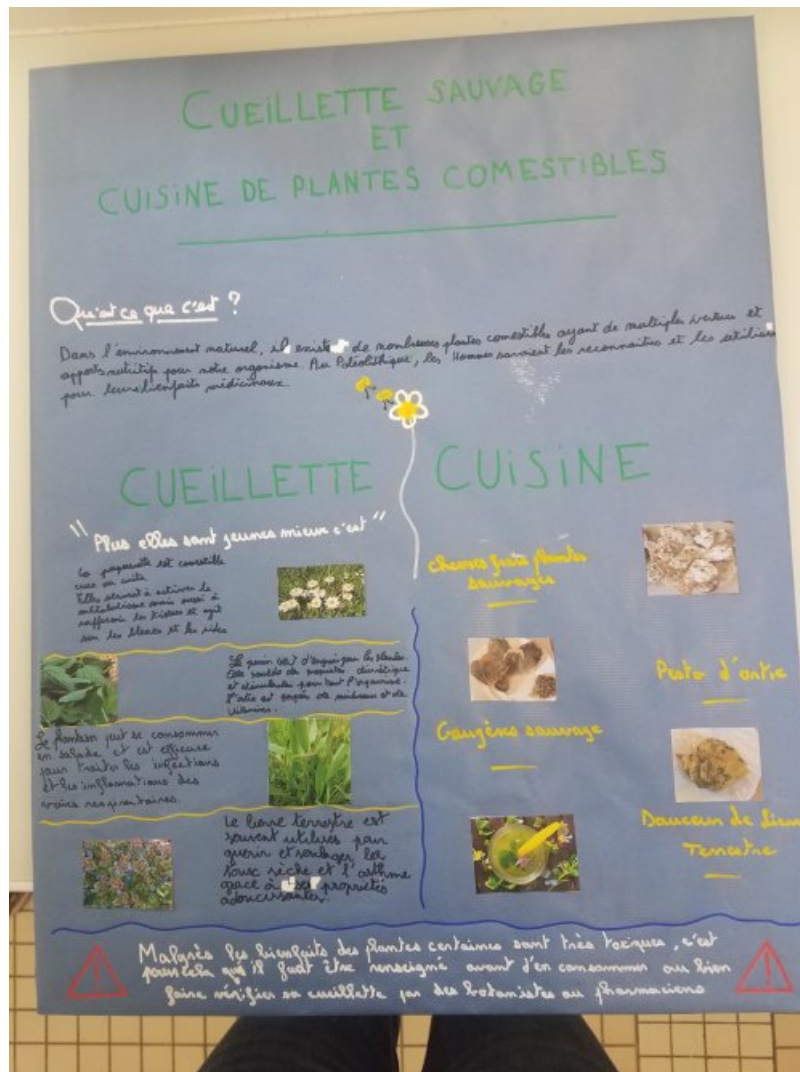 CUEILLETTE SAUVAGE
ET
CUISINE DE PLANTES COMESTIBLES
Qu'est ce que c'est ?
Dans l'environnement naturel, il existe de nombreuses plantes comestibles ayant de multiples vertus et
apports nutritifs pour notre organisme. Au Paléolithique, les Hommes savaient les reconnaitres et les utiliser
pour leurs bienfaits médicinaux.
CUEILLETTE
"Plus elles sont jeunes mieux c'est"
La paquerette est comestible
crue ou cuite.
Elles servent à activer le
métabolisme mais aussi à
raffermir les tissus et agit
sur les bleues et les rides
plantes.
et stimulantes pour tout l'organisme.
L'ortie est gorgée de minéraux et de
vitamines.
Le plantain peut se consommer
en salade et est efficace
pour traiter les infections
et les inflammations des
voies respiratoires.
Le lierre terrestre est
souvent utilisés pour
guérir et soulager la
toux sèche et l'asthme
grace à ses propriétés
adoucissantes.
CUISINE
cheeses frais plantes
sauvages
Pesto d'ortie
Gougères sauvage
Douceur de Lierre
Terrestre
Malgrès les bienfaits des plantes certaines sont très toxiques, c'est
pour cela qu'il faut être renseigné avant d'en consommer ou bien
faire vérifier sa cueillette par des botanistes ou pharmaciens